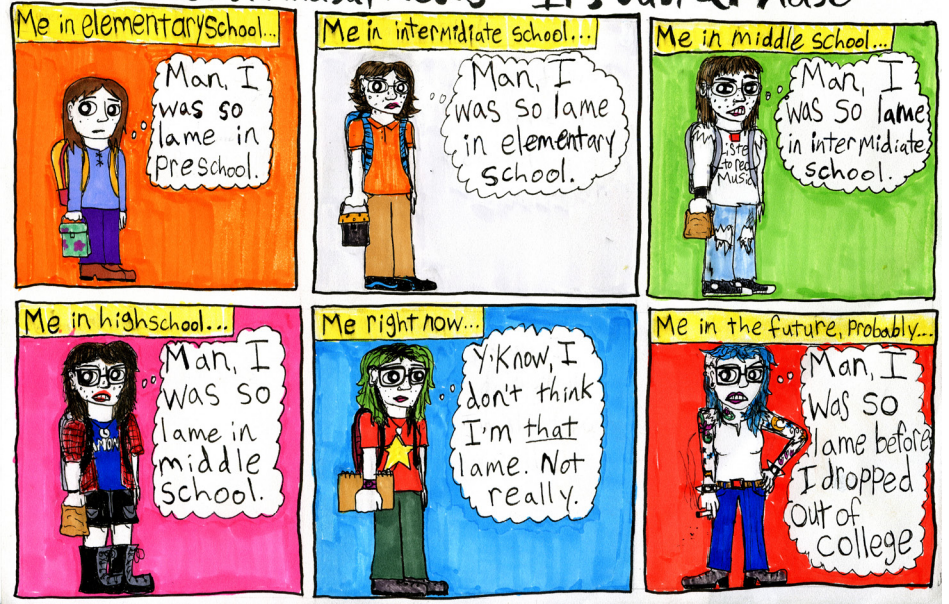 It's Just a Phase
Me in elementary school...
Man, I
was so
lame in
preschool.
Me in intermidiate school...
Man, I
was so lame
in elementary
school.
Me in middle school...
Man, I
was so lame
in intermidiate
school.
to
Music
Me in highschool...
Man, I
was so
lame in
middle
school.
Me right now...
Y'know, I
don't think
I'm that
lame. Not
really.
Me in the future, probably...
Man, I
was so
lame before
I dropped
out of
college